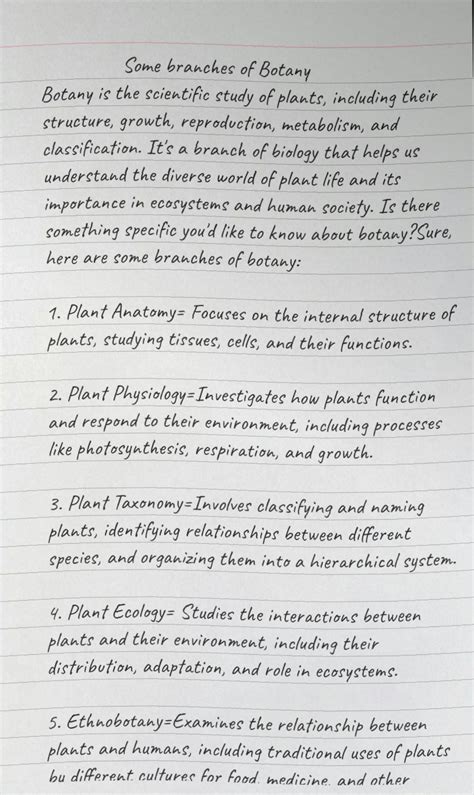 Some branches of Botany
Botany is the scientific study of plants, including their
structure, growth, reproduction, metabolism, and
classification. It's a branch of biology that helps us
understand the diverse world of plant life and its
importance in ecosystems and human society. Is there
something specific you'd like to know about botany?Sure,
here are some branches of botany:
1. Plant Anatomy= Focuses on the internal structure of
plants, studying tissues, cells, and their functions.
2. Plant Physiology=Investigates how plants function
and respond to their environment, including processes
like photosynthesis, respiration, and growth.
3. Plant Taxonomy=Involves classifying and naming
plants, identifying relationships between different
species, and organizing them into a hierarchical system.
4. Plant Ecology= Studies the interactions between
plants and their environment, including their
distribution, adaptation, and role in ecosystems.
5. Ethnobotany=Examines the relationship between
plants and humans, including traditional uses of plants
by different cultures for food, medicine, and other